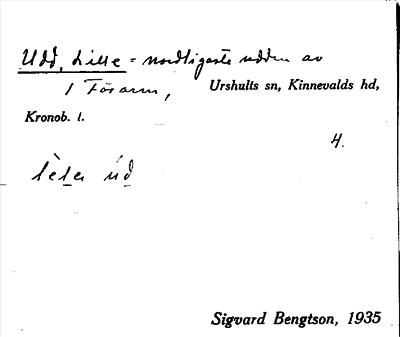 Udd, Lille = nordligaste udden av
1 Fösarm, Urshults sn, Kinnevalds hd,
Kronob. l.
4.
lèla úd
Sigvard Bengtson, 1935